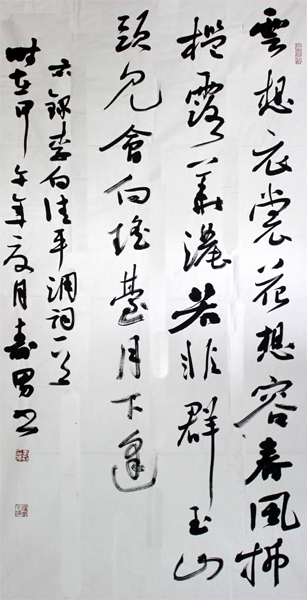 雲想衣裳花想容春風拂
檻露華濃若非群玉山
頭見會向瑤臺月下逢
錄李白清平調詞一首
時在甲午年夏月壽男書